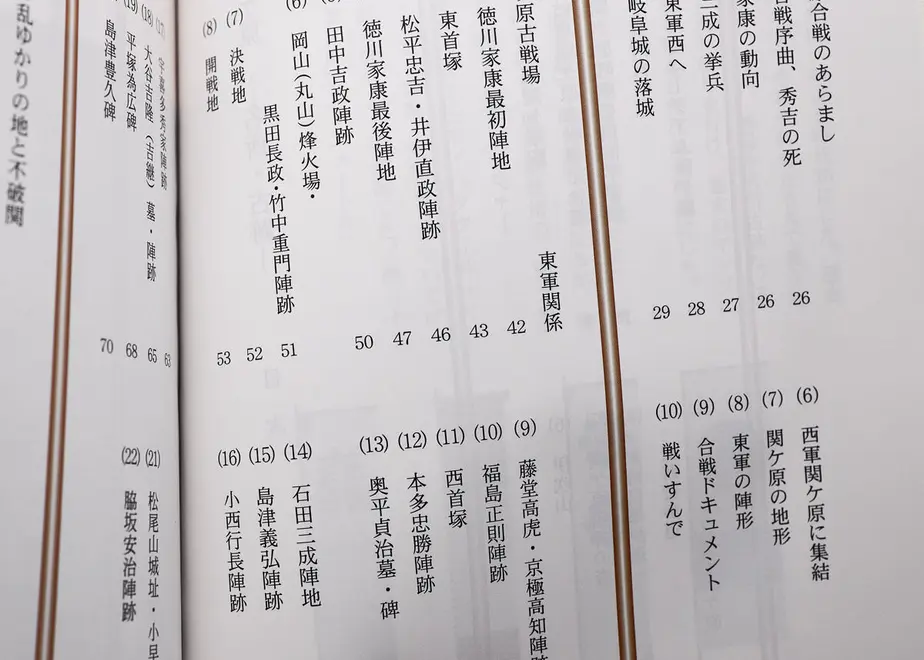 合戦のあらまし
合戦序曲、秀吉の死 26
家康の動向 26
三成の挙兵 27
東軍西へ 28
岐阜城の落城 29
(6) 西軍関ケ原に集結
(7) 関ケ原の地形
(8) 東軍の陣形
(9) 合戦ドキュメント
(10) 戦いすんで
原古戦場
東軍関係
徳川家康最初陣地 42
東首塚 43
松平忠吉・井伊直政陣跡 46
徳川家康最後陣地 47
田中吉政陣跡 50
(6) 岡山(丸山)烽火場・
黒田長政・竹中重門陣跡 51
(7) 決戦地 52
(8) 開戦地 53
(9) 藤堂高虎・京極高知陣跡
(10) 福島正則陣跡
(11) 西首塚
(12) 本多忠勝陣跡
(13) 奥平貞治墓・碑
(14) 石田三成陣地
(15) 島津義弘陣跡
(16) 小西行長陣跡
(17) 宇喜多秀家陣跡 63
(18) 大谷吉隆(吉継)墓・陣跡 65
(19) 平塚為広碑 68
島津豊久碑 70
(21) 松尾山城址・小早
(22) 脇坂安治陣跡
乱ゆかりの地と不破関